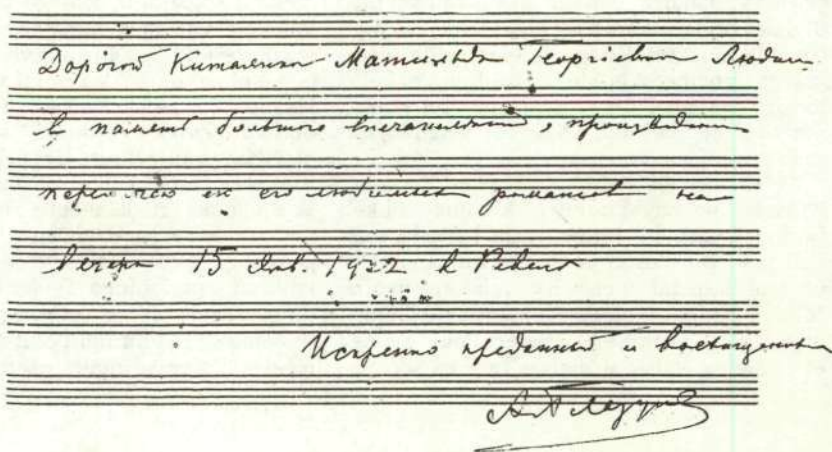 Дорогой Матильде Георгіевне Людиг
в память большого впечатления, произведен
передачею ею его любимых романсов на
вечере 15 Янв. 1922 в Ревеле
Искренно преданный и восхищенный
А. Глазунов